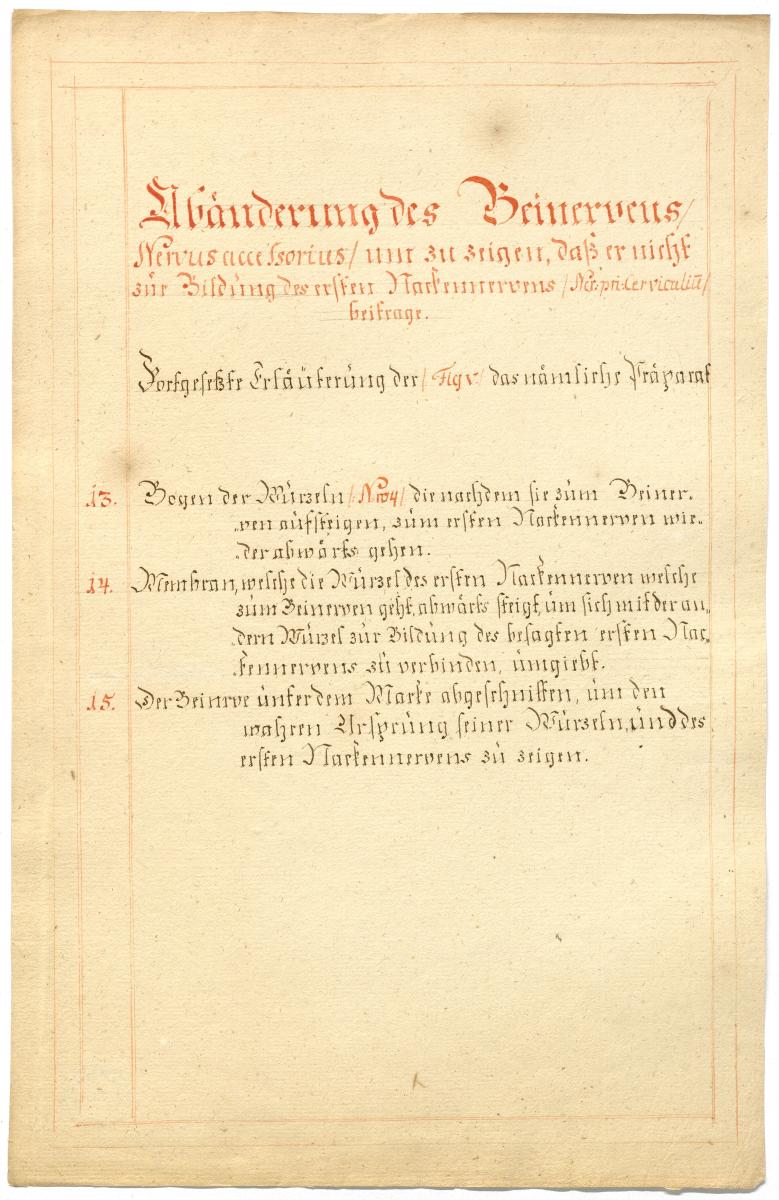 Abänderung des Beinervens /
Nervus accessorius / um zu zeigen, daß er nicht
zur Bildung des ersten Nackennervens / Ner: pri: Cerviculiū /
beitrage.
Fortgesetzte Erläuterung der / Fig v / das nämliche Präparat
13. Bogen der Wurzeln / Nro 4 / die nachdem sie zum Beiner„
„ven aufsteigen, zum ersten Nackennerven wie„
„der abwärts gehen.
14. Membran, welche die Wurzel des ersten Nackennerven welche
zum Beinerven geht, abwärts steigt, um sich mit der an„
„dern Wurzel zur Bildung des besagten ersten Nac„
„kennervens zu verbinden, umgiebt.
15. Der Beinrve unter dem Marke abgeschnitten, um den
wahren Ursprung seiner Wurzeln, und des
ersten Nackennervens zu zeigen.